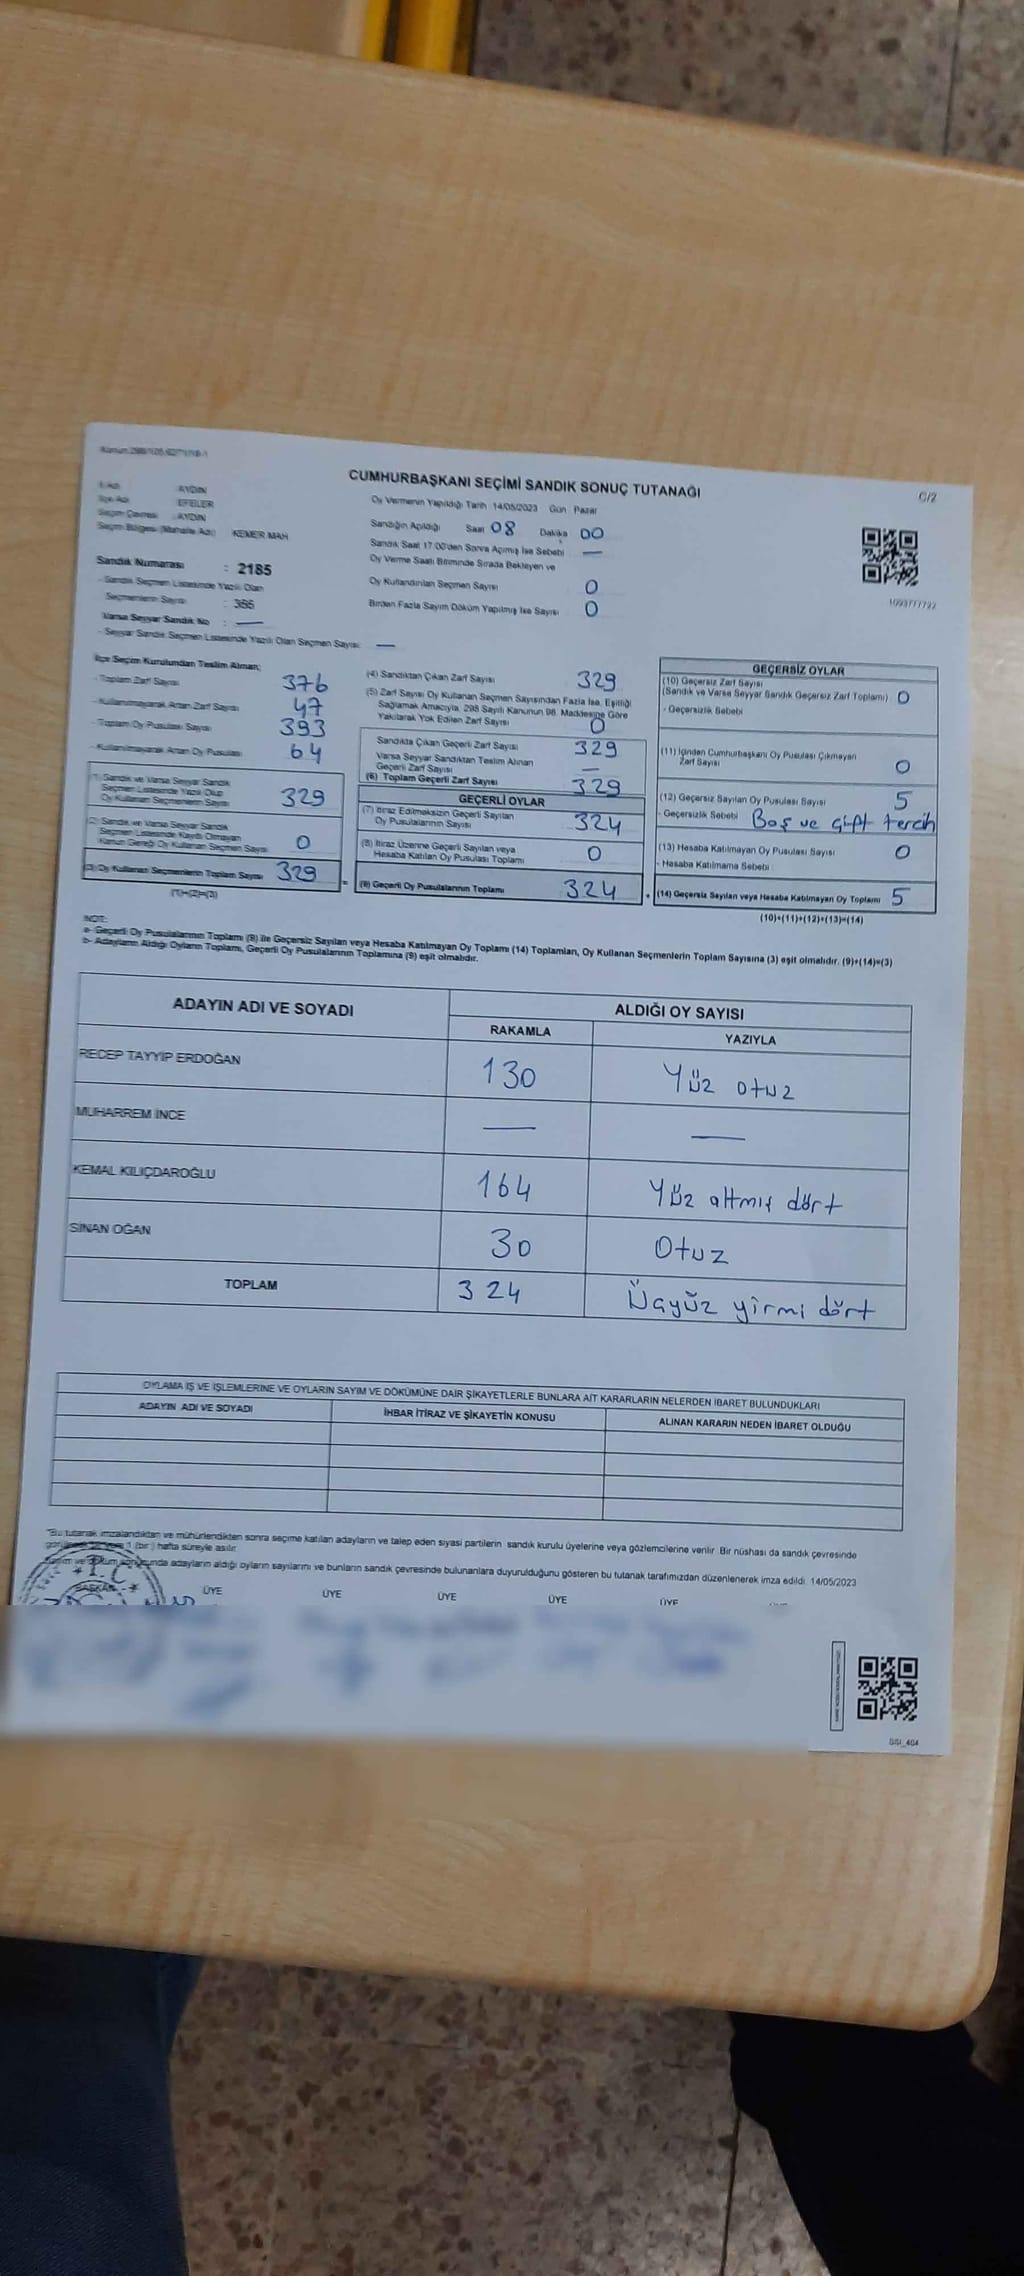 CUMHURBAŞKANI SEÇİMİ SANDIK SONUÇ TUTANAĞI
C/2
İli Adı : AYDIN
İlçe Adı : EFELER
Seçim Çevresi : AYDIN
Seçim Bölgesi (Mahalle Adı) : KEMER MAH
Sandık Numarası : 2185
- Sandık Seçmen Listesinde Yazılı Olan
Seçmenlerin Sayısı
Varsa Seyyar Sandık No : —
- Seyyar Sandık Seçmen Listesinde Yazılı Olan Seçmen Sayısı: —
Oy Vermenin Yapıldığı Tarih 14/05/2023 Gün Pazar
Sandığın Açıldığı Saat 08 Dakika 00
Sandık Saat 17:00'den Sonra Açılmış İse Sebebi —
Oy Verme Saati Bitiminde Sırada Bekleyen ve
Oy Kullandırılan Seçmen Sayısı 0
Birden Fazla Sayım Döküm Yapılmış İse Sayısı 0
İlçe Seçim Kurulundan Teslim Alınan;
- Toplam Zarf Sayısı 376
- Kullanılmayarak Artan Zarf Sayısı 47
- Toplam Oy Pusulası Sayısı 393
- Kullanılmayarak Artan Oy Pusulası 64
(1) Sandık ve Varsa Seyyar Sandık
Seçmen Listesinde Yazılı Olup
Oy Kullanan Seçmenlerin Sayısı 329
(2) Sandık ve Varsa Seyyar Sandık
Seçmen Listesinde Kaydı Olmayan
Kanun Gereği Oy Kullanan Seçmen Sayısı 0
(3) Oy Kullanan Seçmenlerin Toplam Sayısı 329
(1)+(2)=(3)
(4) Sandıktan Çıkan Zarf Sayısı 329
(5) Zarf Sayısı Oy Kullanan Seçmen Sayısından Fazla İse, Eşitliği
Sağlamak Amacıyla, 298 Sayılı Kanunun 98. Maddesine Göre
Yakılarak Yok Edilen Zarf Sayısı 0
Sandıkta Çıkan Geçerli Zarf Sayısı 329
Varsa Seyyar Sandıktan Teslim Alınan
Geçerli Zarf Sayısı —
(6) Toplam Geçerli Zarf Sayısı 329
GEÇERLİ OYLAR
(7) İtiraz Edilmeksizin Geçerli Sayılan
Oy Pusulalarının Sayısı 324
(8) İtiraz Üzerine Geçerli Sayılan veya
Hesaba Katılan Oy Pusulası Toplamı 0
(9) Geçerli Oy Pusulalarının Toplamı 324
GEÇERSİZ OYLAR
(10) Geçersiz Zarf Sayısı
(Sandık ve Varsa Seyyar Sandık Geçersiz Zarf Toplamı) 0
- Geçersizlik Sebebi
(11) İçinden Cumhurbaşkanı Oy Pusulası Çıkmayan
Zarf Sayısı 0
(12) Geçersiz Sayılan Oy Pusulası Sayısı 5
- Geçersizlik Sebebi Boş ve çift tercih
(13) Hesaba Katılmayan Oy Pusulası Sayısı 0
- Hesaba Katılmama Sebebi
(14) Geçersiz Sayılan veya Hesaba Katılmayan Oy Toplamı 5
(10)+(11)+(12)+(13)=(14)
NOT:
a- Geçerli Oy Pusulalarının Toplamı (9) ile Geçersiz Sayılan veya Hesaba Katılmayan Oy Toplamı (14) Toplamları, Oy Kullanan Seçmenlerin Toplam Sayısına (3) eşit olmalıdır. (9)+(14)=(3)
b- Adayların Aldığı Oyların Toplamı, Geçerli Oy Pusulalarının Toplamına (9) eşit olmalıdır.
ADAYIN ADI VE SOYADI
ALDIĞI OY SAYISI
RAKAMLA YAZIYLA
RECEP TAYYİP ERDOĞAN 130 Yüz otuz
MUHARREM İNCE — —
KEMAL KILIÇDAROĞLU 164 Yüz altmış dört
SİNAN OĞAN 30 Otuz
TOPLAM 324 Üçyüz yirmi dört
OYLAMA İŞ VE İŞLEMLERİNE VE OYLARIN SAYIM VE DÖKÜMÜNE DAİR ŞİKAYETLERLE BUNLARA AİT KARARLARIN NELERDEN İBARET BULUNDUKLARI
ADAYIN ADI VE SOYADI İHBAR İTİRAZ VE ŞİKAYETİN KONUSU ALINAN KARARIN NEDEN İBARET OLDUĞU
"Bu tutanak imzalandıktan ve mühürlendikten sonra seçime katılan adayların ve talep eden siyasi partilerin sandık kurulu üyelerine veya gözlemcilerine verilir. Bir nüshası da sandık çevresinde
1 (bir) hafta süreyle asılır.
adayların aldığı oyların sayılarını ve bunların sandık çevresinde bulunanlara duyurulduğunu gösteren bu tutanak tarafımızdan düzenlenerek imza edildi. 14/05/2023
BAŞKAN ÜYE ÜYE ÜYE ÜYE ÜYE